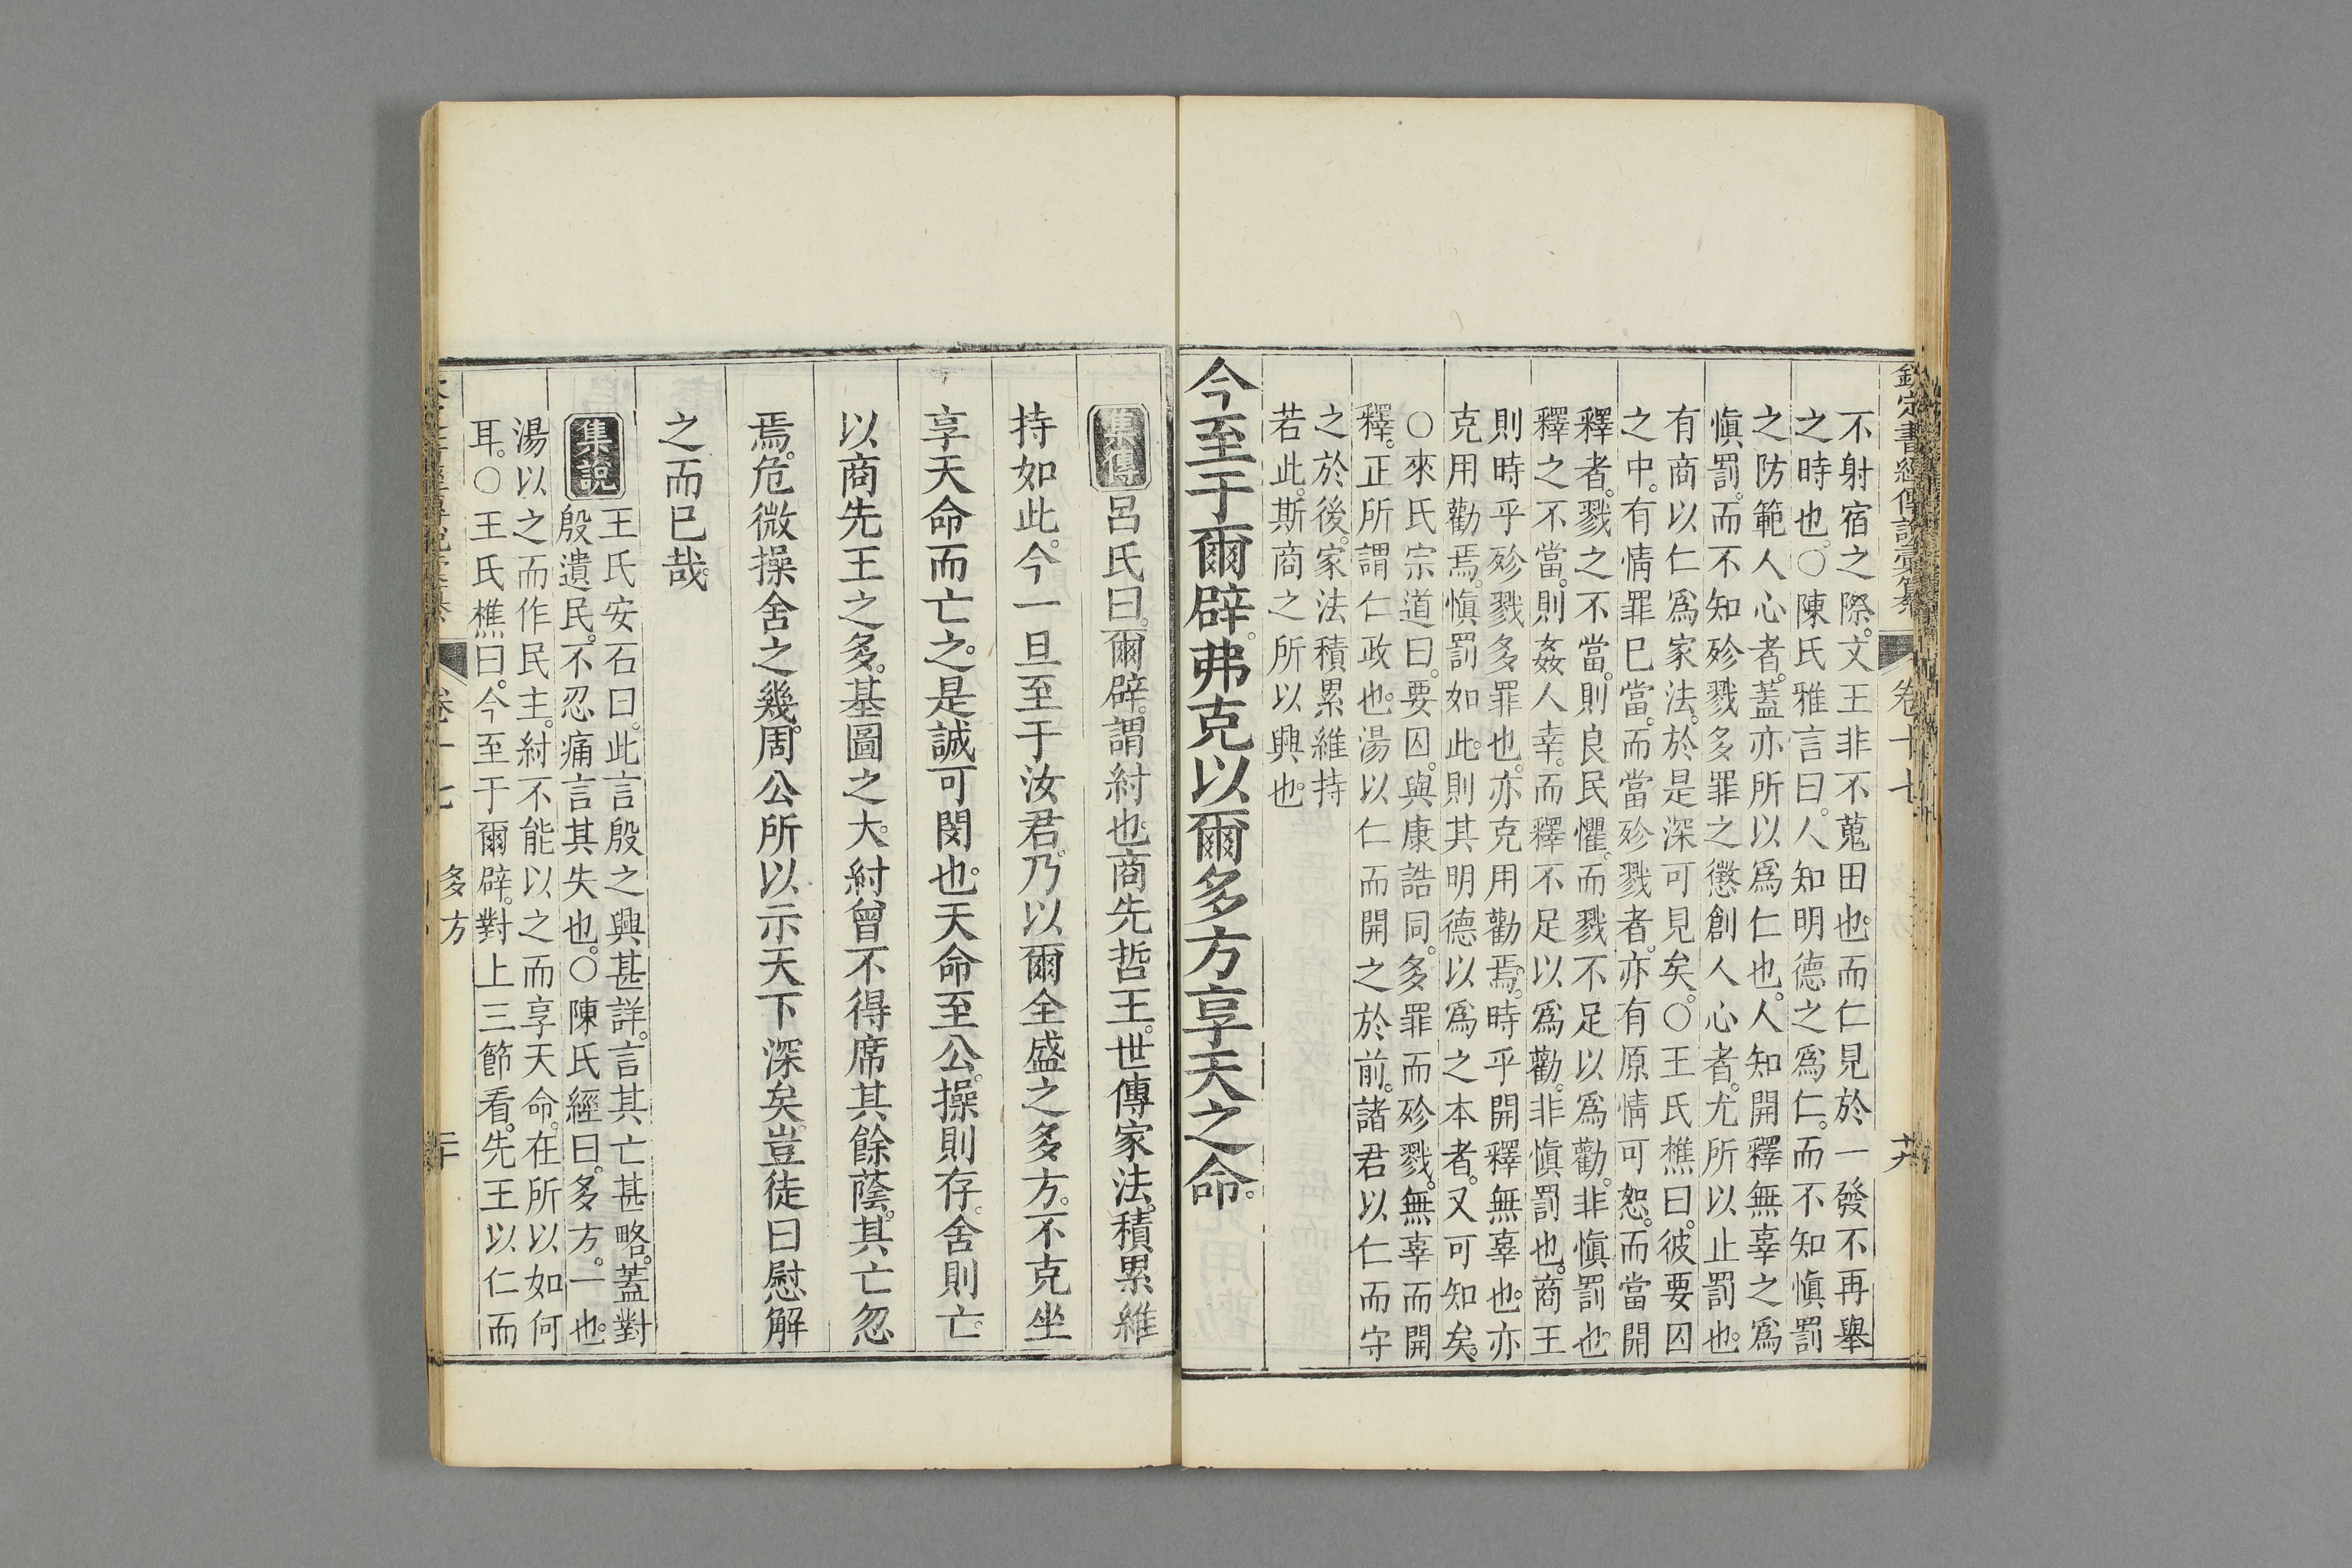 欽定書經傳說彙纂 卷十七
不射宿之際。文王非不蒐田也。而仁見於一發不再舉
之時也。○陳氏雅言曰。人知明德之爲仁。而不知愼罰
之防範人心者。蓋亦所以爲仁也。人知開釋無辜之爲
愼罰。而不知殄戮多罪之懲創人心者。尤所以止罰也。
有商以仁爲家法。於是深可見矣。○王氏樵曰。彼要囚
之中。有情罪已當。而當殄戮者。亦有原情可恕。而當開
釋者。戮之不當。則良民懼。而戮不足以爲勸。非愼罰也。
釋之不當。則姦人幸。而釋不足以爲勸。非愼罰也。商王
則時乎殄戮多罪也。亦克用勸焉。時乎開釋無辜也。亦
克用勸焉。愼罰如此。則其明德以爲之本者。又可知矣。
○來氏宗道曰。要囚。與康誥同。多罪而殄戮。無辜而開
釋。正所謂仁政也。湯以仁而開之於前。諸君以仁而守
之於後。家法積累維持
若此。斯商之所以興也。
今至于爾辟。弗克以爾多方享天之命。
集傳 呂氏曰。爾辟。謂紂也。商先哲王。世傳家法。積累維
持如此。今一旦至于汝君。乃以爾全盛之多方。不克坐
享天命而亡之。是誠可閔也。天命至公。操則存。舍則亡。
以商先王之多。基圖之大。紂曾不得席其餘蔭。其亡忽
焉。危微操舍之幾。周公所以示天下深矣。豈徒曰慰解
之而已哉。
集說 王氏安石曰。此言殷之興甚詳。言其亡甚略。蓋對
殷遺民。不忍痛言其失也。○陳氏經曰。多方。一也。
湯以之而作民主。紂不能以之而享天命。在所以如何
耳。○王氏樵曰。今至于爾辟。對上三節看。先王以仁而
卷十七 多方